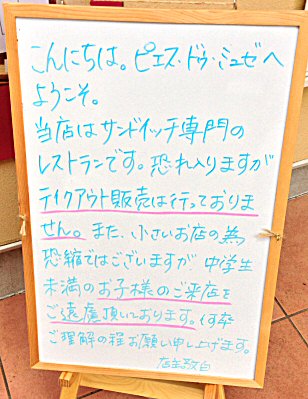 こんにちは。ピエス・ドゥ・ミュゼへ
ようこそ。
当店はサンドイッチ専門の
レストランです。恐れ入りますが
テイクアウト販売は行っておりま
せん。また、小さいお店の為
恐縮ではございますが 中学生
未満のお子様のご来店を
ご遠慮頂いております。何卒
ご理解の程お願い申し上げます。
店主敬白